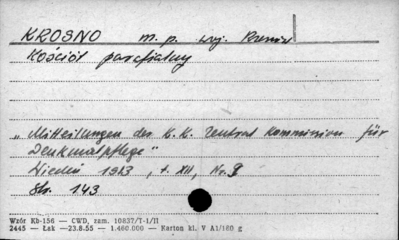 KROSNO m. p. woj.
Kościół parafialny
"Mitteilungen der K. K. Zentral Kommission für
Denkmalpflege"
Wiedeń 1913, t. XII, Nr. 9
Str. 143
Wzór Kb-156 — CWD, zam. 10837/T-1/II
2445 — Lsk —23.8.55 — 1.460.000 — Karton kl. V A1/160 g